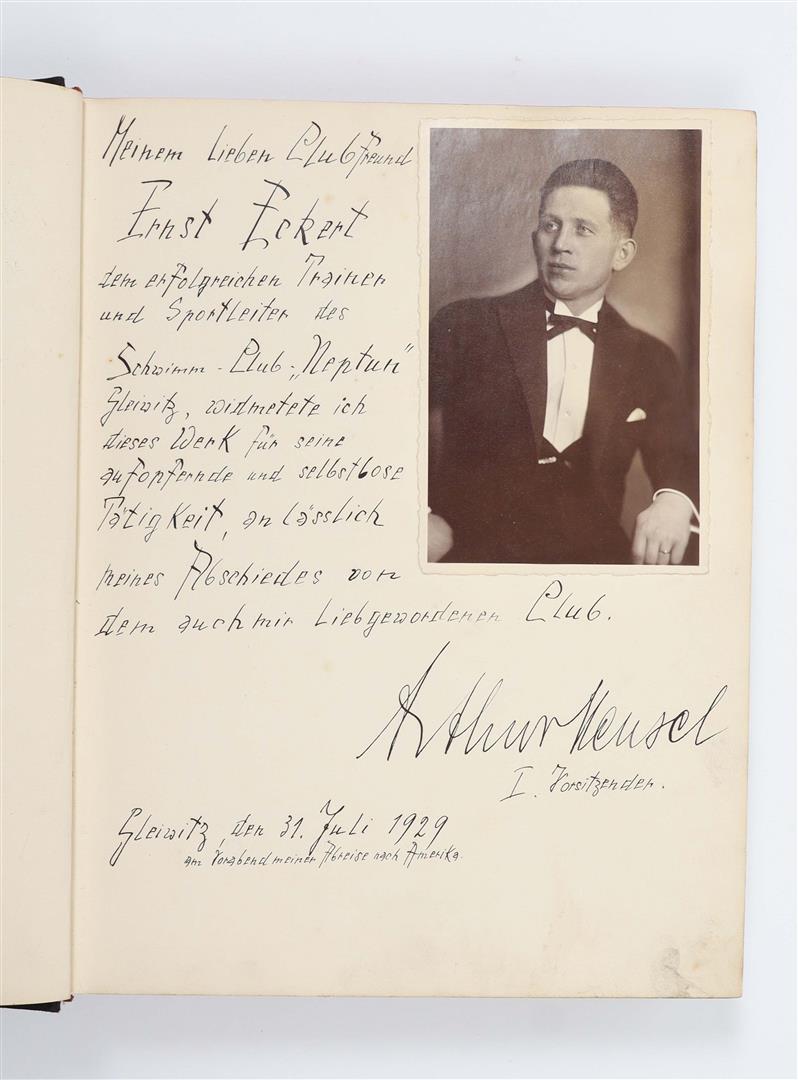 Meinem lieben Clubfreund
Ernst Eckert
dem erfolgreichen Trainer
und Sportleiter des
Schwimm-Club-„Neptun"
Gleiwitz, widmetete ich
dieses Werk für seine
aufopfernde und selbstlose
Tätigkeit, anlässlich
meines Abschiedes von
dem auch mir liebgewordenen Club.
Arthur
I. Vorsitzender.
Gleiwitz, den 31. Juli 1929
am Vorabend meiner Abreise nach Amerika.